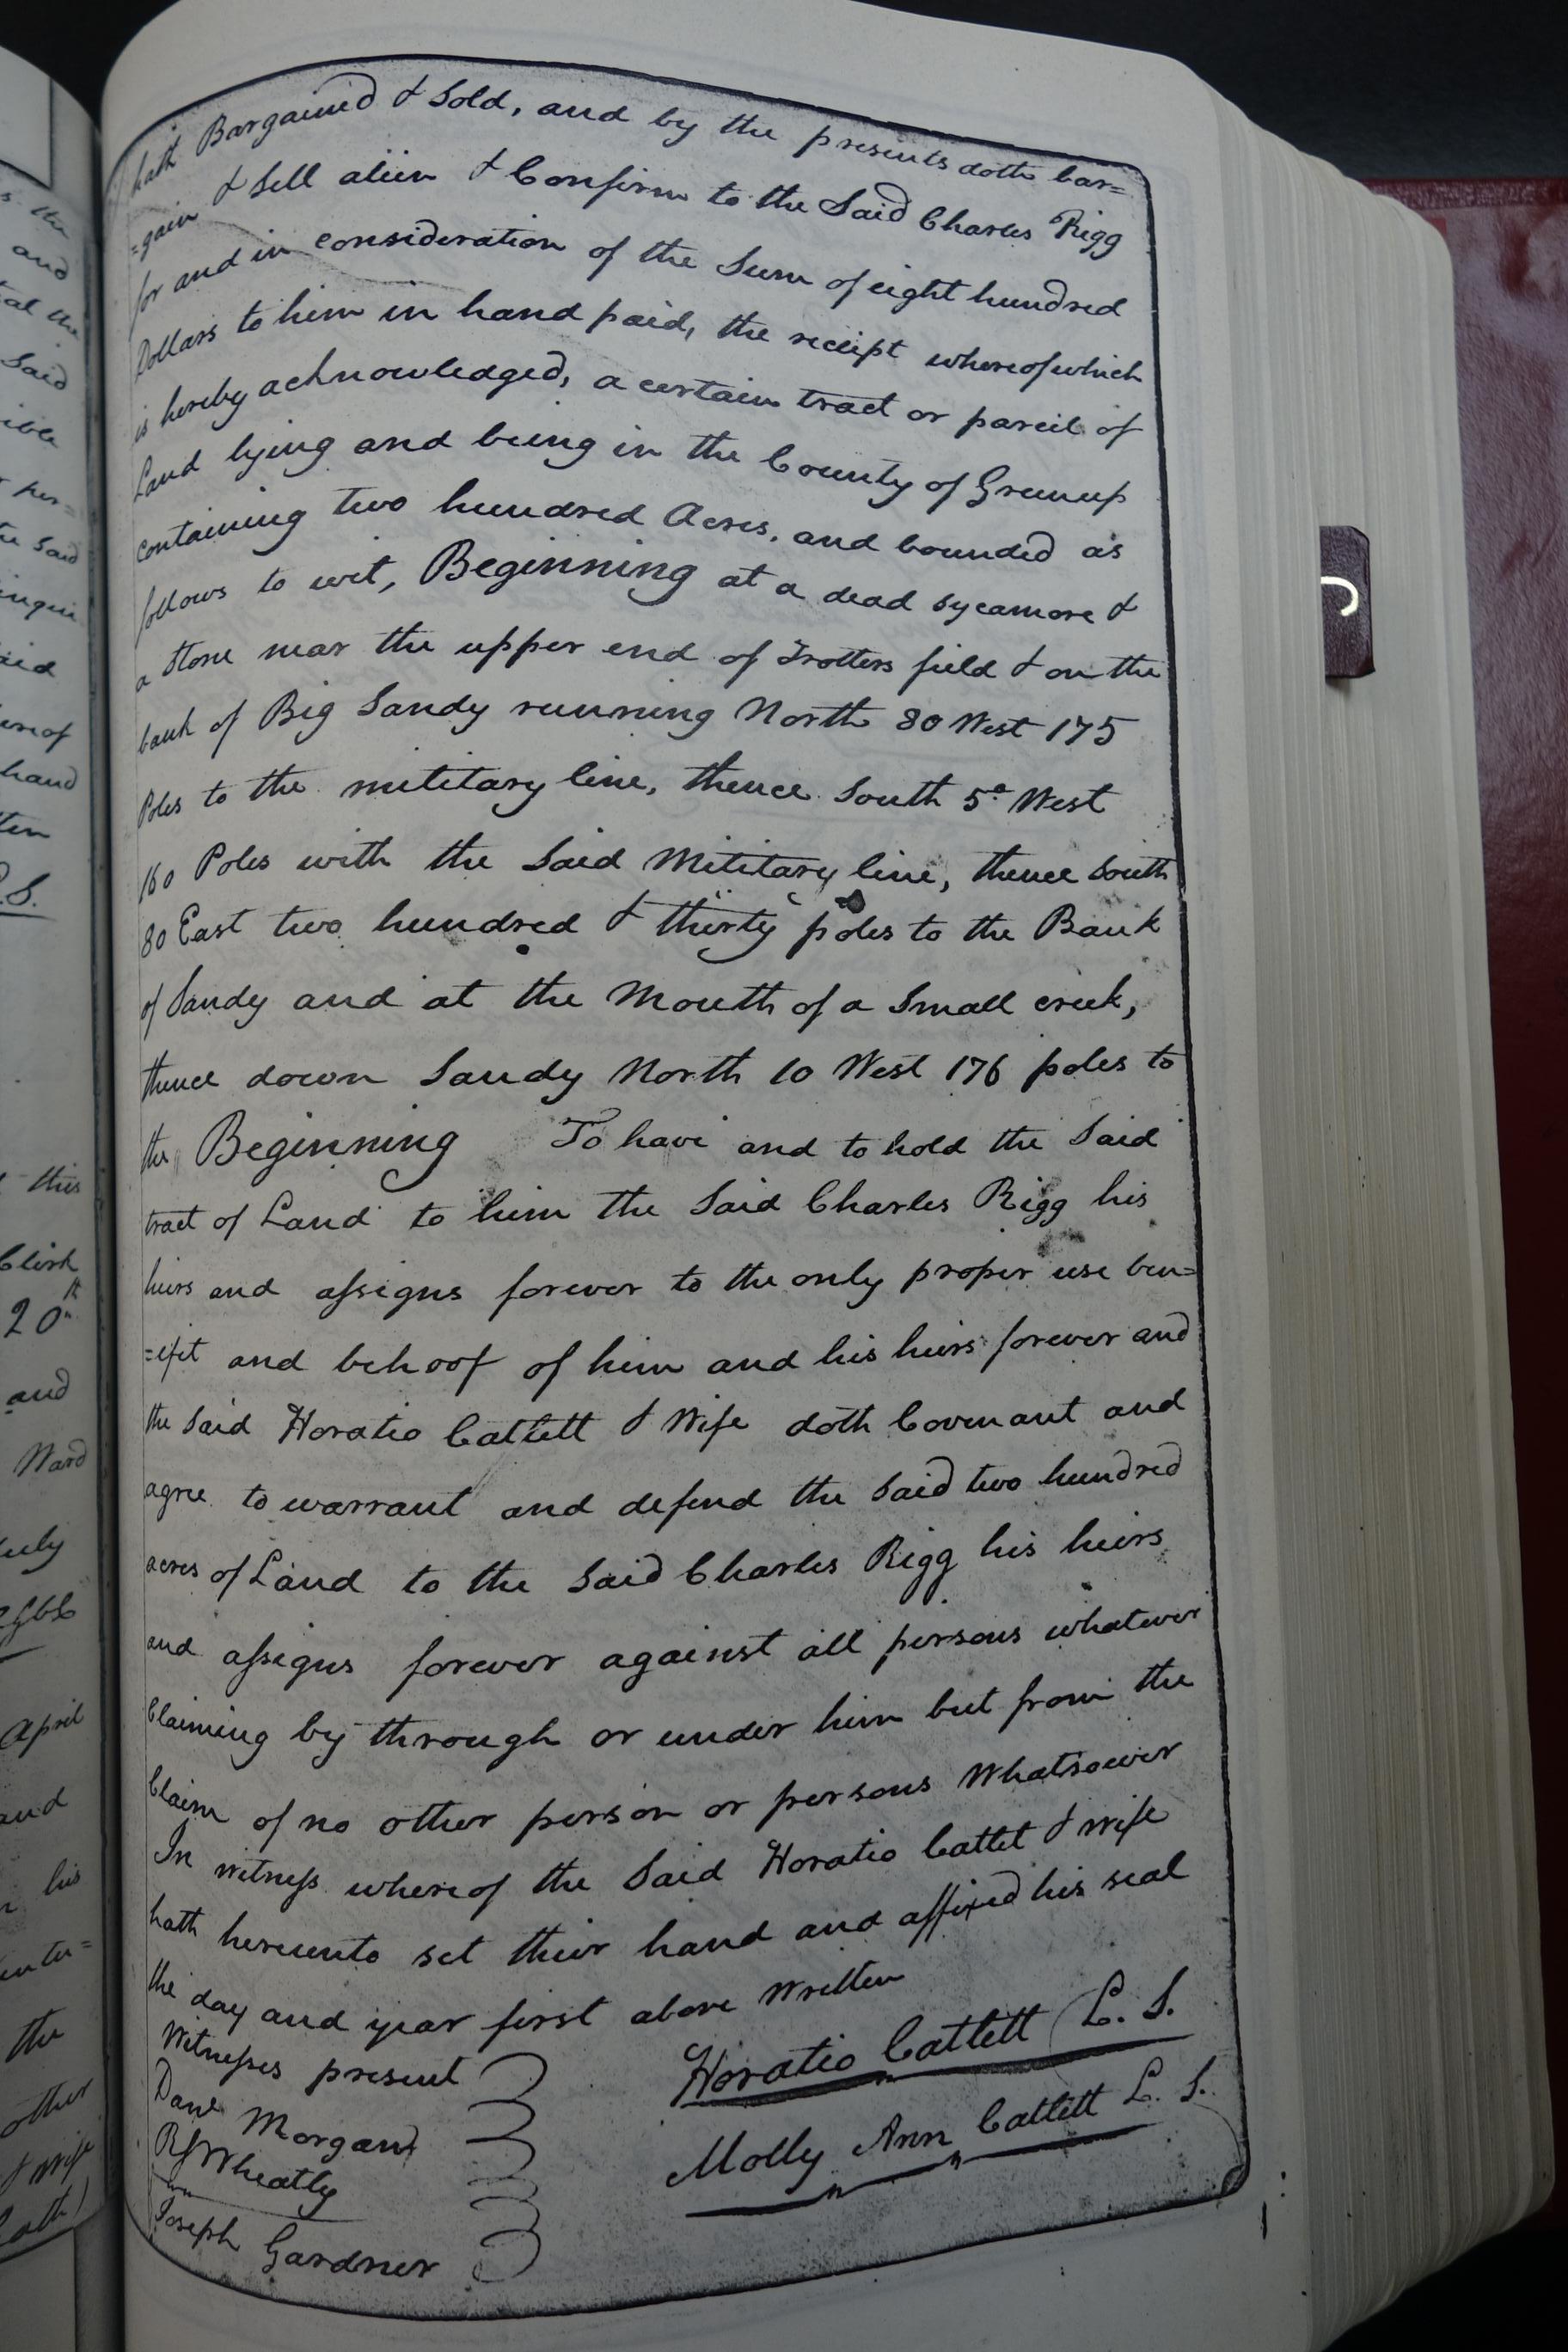 hath Bargained & Sold, and by the presents doth bar=
=gain & Sell alien & Confirm to the Said Charles Rigg
for and in consideration of the Sum of eight hundred
Dollars to him in hand paid, the receipt whereof which
is hereby acknowledged, a certain tract or parcel of
Land lying and being in the County of Greenup
containing two hundred Acres, and bounded as
follows to wit, Beginning at a dead sycamore &
a Stone near the upper end of Trotters field & on the
bank of Big Sandy running North 80 West 175
Poles to the military line, thence South 5° West
160 Poles with the Said Military line, thence South
80 East two hundred & thirty poles to the Bank
of Sandy and at the Mouth of a Small creek,
thence down Sandy North 10 West 176 poles to
the Beginning To have and to hold the Said
tract of Land to him the Said Charles Rigg his
heirs and assigns forever to the only proper use ben=
=efit and behoof of him and his heirs forever and
the Said Horatio Catlett & Wife doth Covenant and
agree to warrant and defend the Said two hundred
acres of Land to the Said Charles Rigg his heirs
and assigns forever against all persons whatever
Claiming by through or under him but from the
Claim of no other person or persons Whatsoever
In witness whereof the Said Horatio Cattlet & wife
hath hereunto set their hand and affixed his seal
the day and year first above Written
Witnesses present
Horatio Catlett L. S.
Danl Morgan
Molly Ann Catlett L. S.
Wheatly
Joseph Gardner
s the
and
the
Said
ible
per=
Said
said
hereof
hand
L.S.
this
Clerk
20th
and
Ward
July
April
and
his
the
other
& wife